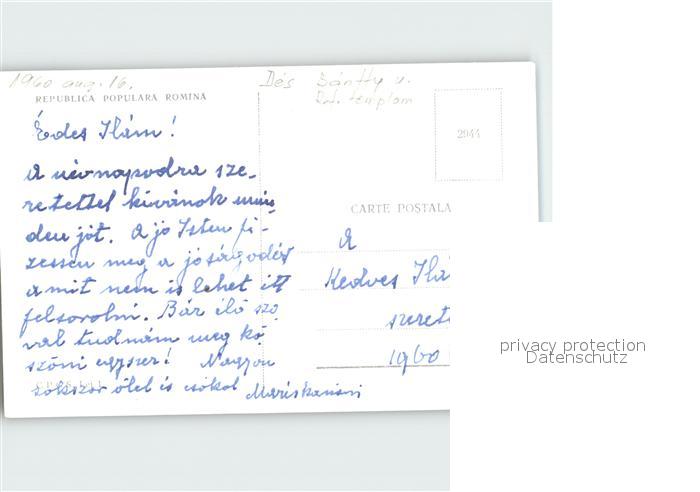 1960 aug. 16.
Dés Bánffy u.
Ref. templom
REPUBLICA POPULARA ROMINA
Édes Ilám!
A névnapodra sze-
retettel kívánok min
den jót. A jó Isten fi-
zessen meg a jóságodért
a mit nem is lehet itt
felsorolni. Bár élő szó
val tudnám meg kö
szöni egyszer! Nagyon
sokszor ölel is csókol Mariskanéni
2944
CARTE POSTALA
A
Kedves Ilá
szeret
1960
privacy protection
Datenschutz